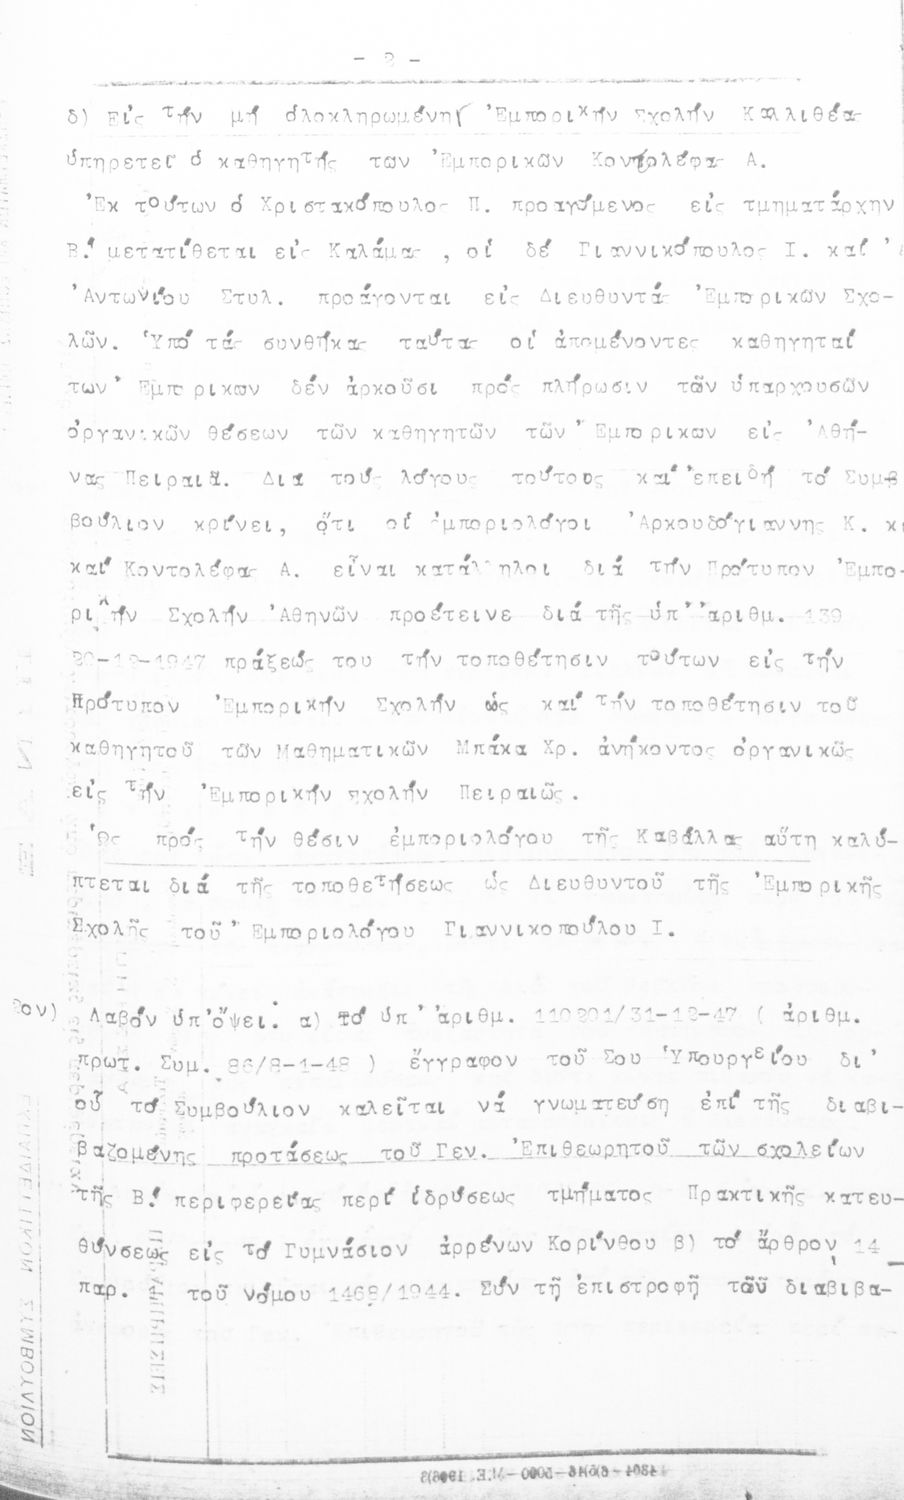 - 2 -
δ) Εἰς τήν μή ὁλοκληρωμένην Ἐμπορικήν Σχολήν Καλλιθέας
ὑπηρετεῖ ὁ καθηγητής των Ἐμπορικῶν Κοντολέφας Α.
Ἐκ τούτων ὁ Χριστακόπουλος Π. προαγόμενος εἰς τμηματάρχην
Β.' μετατίθεται εἰς Καλάμας , οἱ δέ Γιαννικόπουλος Ι. καί
Ἀντωνίου Στυλ. προάγονται εἰς Διευθυντάς Ἐμπορικῶν Σχο-
λῶν. Ὑπό τάς συνθήκας ταύτας οἱ ἀπομένοντες καθηγηταί
των Ἐμπορικων δέν ἀρκοῦσι πρός πλήρωσιν τῶν ὑπαρχουσῶν
ὀργανικῶν θέσεων τῶν καθηγητῶν τῶν Ἐμπορικων εἰς Ἀθή-
νας Πειραιᾶ. Δια τούς λόγους τούτους καί ἐπειδή τό Συμβ
βούλιον κρίνει, ὅτι οἱ ἐμποριολόγοι Ἀρκουδόγιαννης Κ. κ
καί Κοντολέφας Α. εἶναι κατάλληλοι διά τήν Πρότυπον Ἐμπο-
ρικήν Σχολήν Ἀθηνῶν προέτεινε διά τῆς ὑπ' ἀριθμ. 139
20-12-1947 πράξεώς του τήν τοποθέτησιν τούτων εἰς τήν
Πρότυπον Ἐμπορικήν Σχολήν ὡς καί τήν τοποθέτησιν τοῦ
καθηγητοῦ τῶν Μαθηματικῶν Μπάκα Χρ. ἀνήκοντος ὀργανικῶς
εἰς τήν Ἐμπορικήν σχολήν Πειραιῶς.
Ὡς πρός τήν θέσιν ἐμποριολόγου τῆς Καβάλλας αὕτη καλύ-
πτεται διά τῆς τοποθετήσεως ὡς Διευθυντοῦ τῆς Ἐμπορικῆς
Σχολῆς τοῦ Ἐμποριολόγου Γιαννικοπούλου Ι.
2ον) Λαβόν ὑπ' ὄψει. α) τό ὑπ' ἀριθμ. 110201/31-12-47 ( ἀριθμ.
πρωτ. Συμ. 86/8-1-48 ) ἔγγραφον τοῦ Σου Ὑπουργείου δι'
οὗ τό Συμβούλιον καλεῖται νά γνωματεύση ἐπί τῆς διαβι-
βαζομένης προτάσεως τοῦ Γεν. Ἐπιθεωρητοῦ τῶν σχολείων
τῆς Β.' περιφερείας περί ἱδρύσεως τμήματος Πρακτικῆς κατευ-
θύνσεως εἰς τό Γυμνάσιον ἀρρένων Κορίνθου β) τό ἄρθρον 14
παρ. 1 τοῦ νόμου 1468/1944. Σύν τῇ ἐπιστροφῇ τῶν διαβιβα-
ΣΥΜΒΟΥΛΙΟΝ